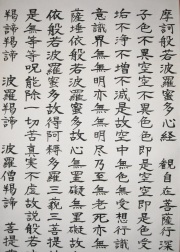 摩訶般若波羅蜜多心經 觀自在菩薩行深
子色不異空空不異色色即是空空即是色受
垢不淨不增不減是故空中無色無受想行識
意識界無無明亦無無明盡乃至無老死亦無
薩埵依般若波羅蜜多故心無罣礙無罣礙故
依般若波羅蜜多故得阿耨多羅三藐三菩提
是無等等呪能除一切苦真實不虛故說般若
羯諦羯諦 波羅羯諦 波羅僧羯諦 菩提